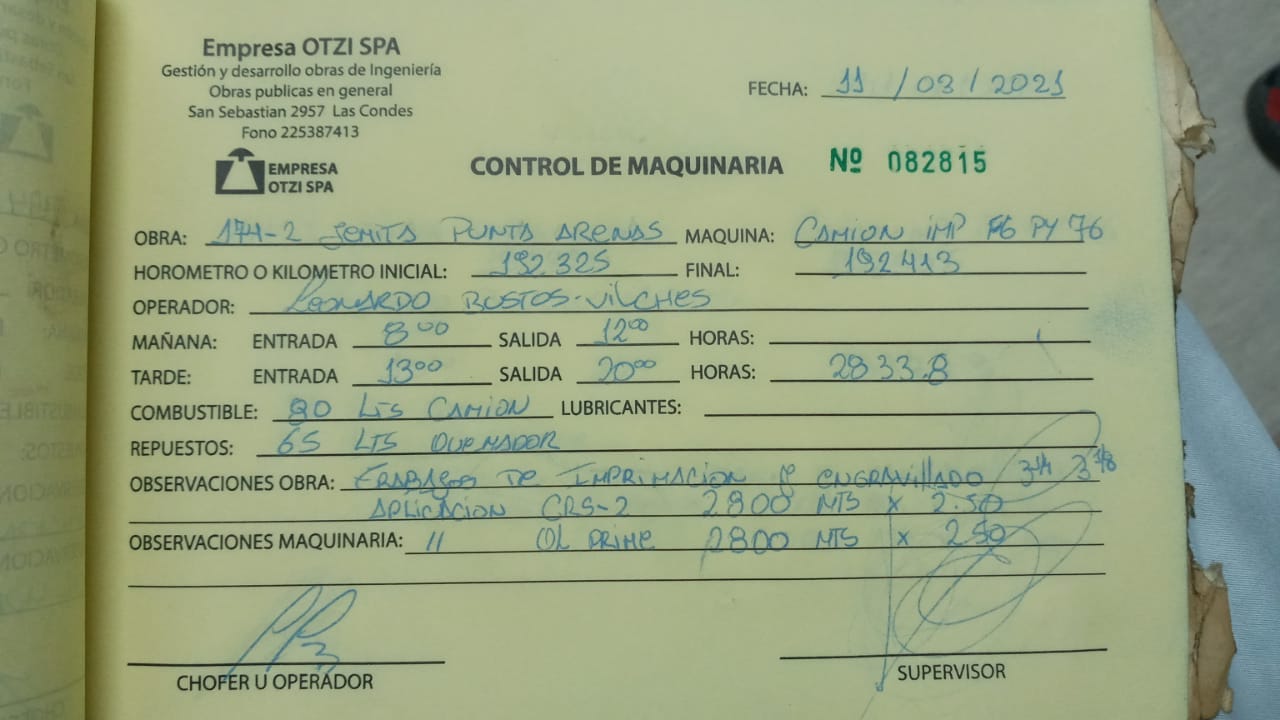 Empresa OTZI SPA
Gestión y desarrollo obras de Ingeniería
Obras publicas en general
San Sebastian 2957 Las Condes
Fono 225387413
FECHA: 11 / 03 / 2021
EMPRESA
OTZI SPA
CONTROL DE MAQUINARIA Nº 082815
OBRA: 174-2 SEMITA PUNTA ARENAS MAQUINA: CAMION IMP FG PY 76
HOROMETRO O KILOMETRO INICIAL: 192.325 FINAL: 192413
OPERADOR: LEONARDO BUSTOS-VILCHES
MAÑANA: ENTRADA 8 00 SALIDA 12 00 HORAS:
TARDE: ENTRADA 13 00 SALIDA 20 00 HORAS: 2833.8
COMBUSTIBLE: 80 LTS CAMION LUBRICANTES:
REPUESTOS: 65 LTS QUEMADOR
OBSERVACIONES OBRA: TRABAJOS DE IMPRIMACION Y ENGRAVILLADO 3/4 3/8
APLICACION CRS-2 2800 MTS x 2.50
OBSERVACIONES MAQUINARIA: 11 OL PRIME 2800 MTS x 2.50
CHOFER U OPERADOR
SUPERVISOR